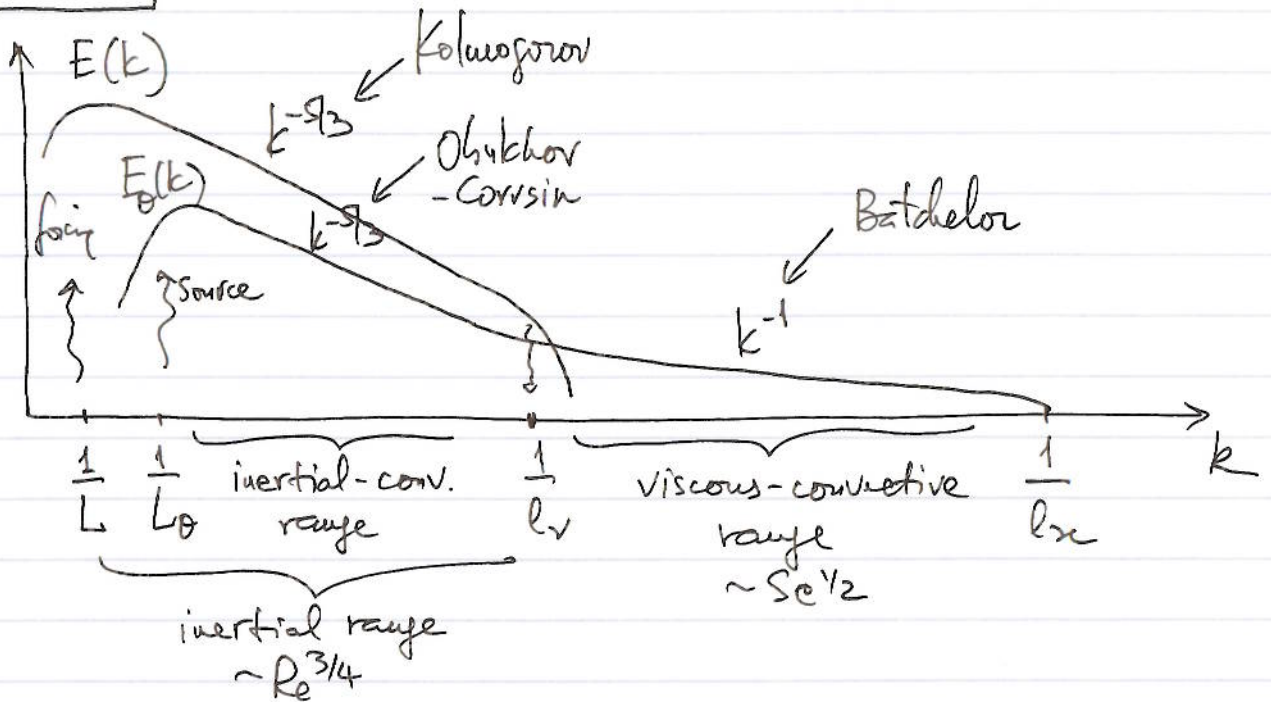 E(k)
Kolmogorov
k^{-5/3}
Obukhov
-Corrsin
E_θ(k)
k^{-5/3}
forcing
source
Batchelor
k^{-1}
1/L
1/L_θ
inertial-conv.
range
1/l_ν
viscous-convective
range
~Sc^{1/2}
1/l_ϰ
k
inertial range
~Re^{3/4}